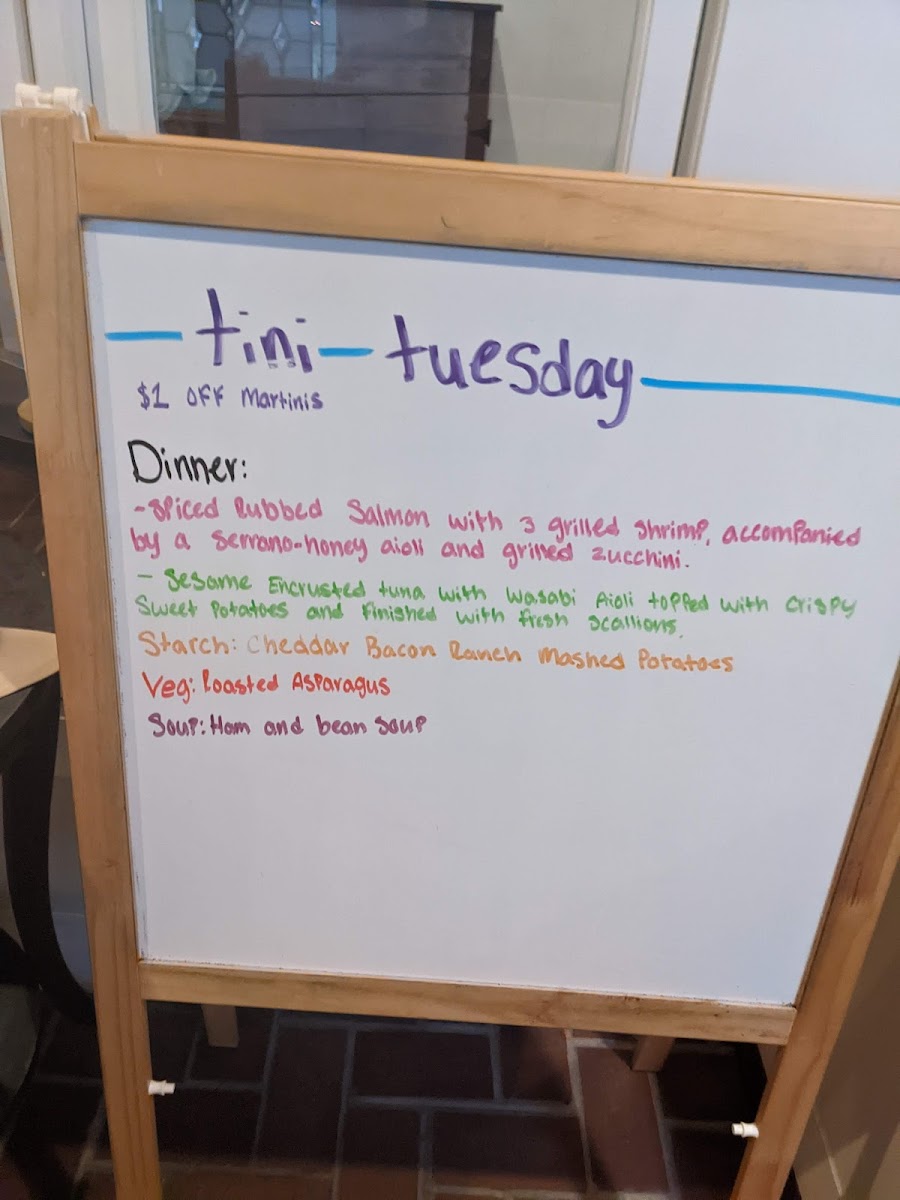 tini - tuesday
$1 OFF Martinis
Dinner:
- Spiced Rubbed Salmon with 3 grilled shrimp, accompanied
by a serrano-honey aioli and grilled zucchini.
- Sesame Encrusted tuna with Wasabi Aioli topped with crispy
Sweet Potatoes and Finished with fresh scallions.
Starch: Cheddar Bacon Ranch Mashed Potatoes
Veg: Roasted Asparagus
Soup: Ham and bean soup